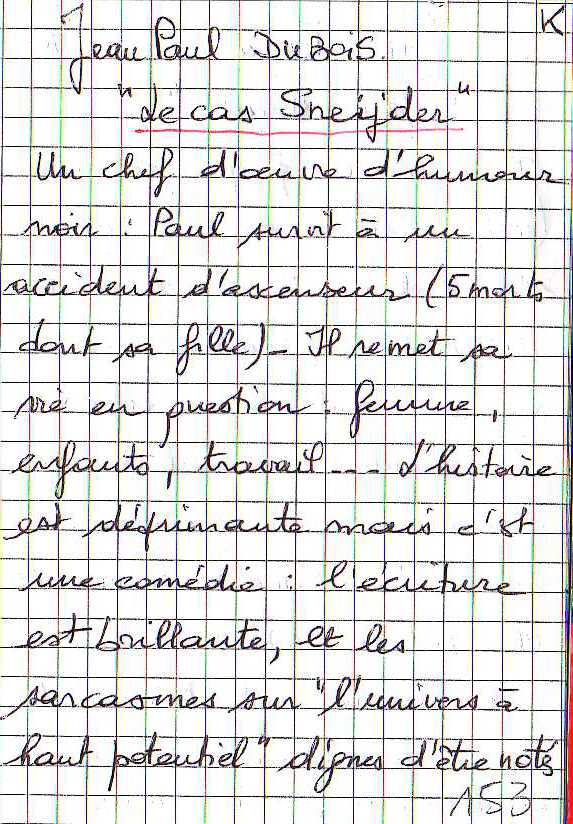 K
Jean Paul DuBois.
"Le cas Sneijder"
Un chef d'œuvre d'humour
noir : Paul survit à un
accident d'ascenseur (5 morts
dont sa fille) - Il remet sa
vie en question : femme,
enfants, travail --- L'histoire
est déprimante mais c'est
une comédie : l'écriture
est brillante, et les
sarcasmes sur "l'univers à
haut potentiel" dignes d'être notés
153